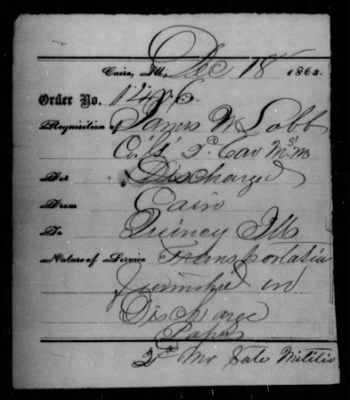 Cairo, Ill, Dec 18 1863.
Order No. 1476
Requisition of James W Lobb
Co. "I" 2d Cav M.S.M
For Discharged
From Cairo
To Quincy Ill
Nature of Service Transportation
furnished on
Discharge
Papers
2d Mo State Militia